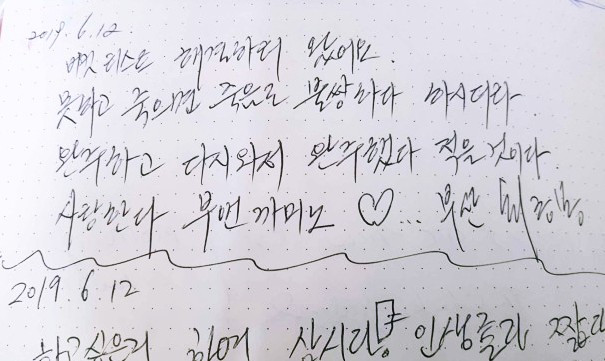 2019.6.12.
버킷 리스트 해결하러 왔어요.
못하고 죽으면 죽음도 불쌍하다 하시더라
완주하고 다시와서 완주했다 적을것이다
사랑한다 부엔까미노 ♡... 부산
2019.6.12
하고싶은거 하며 삽시다 인생 졸라 짧다